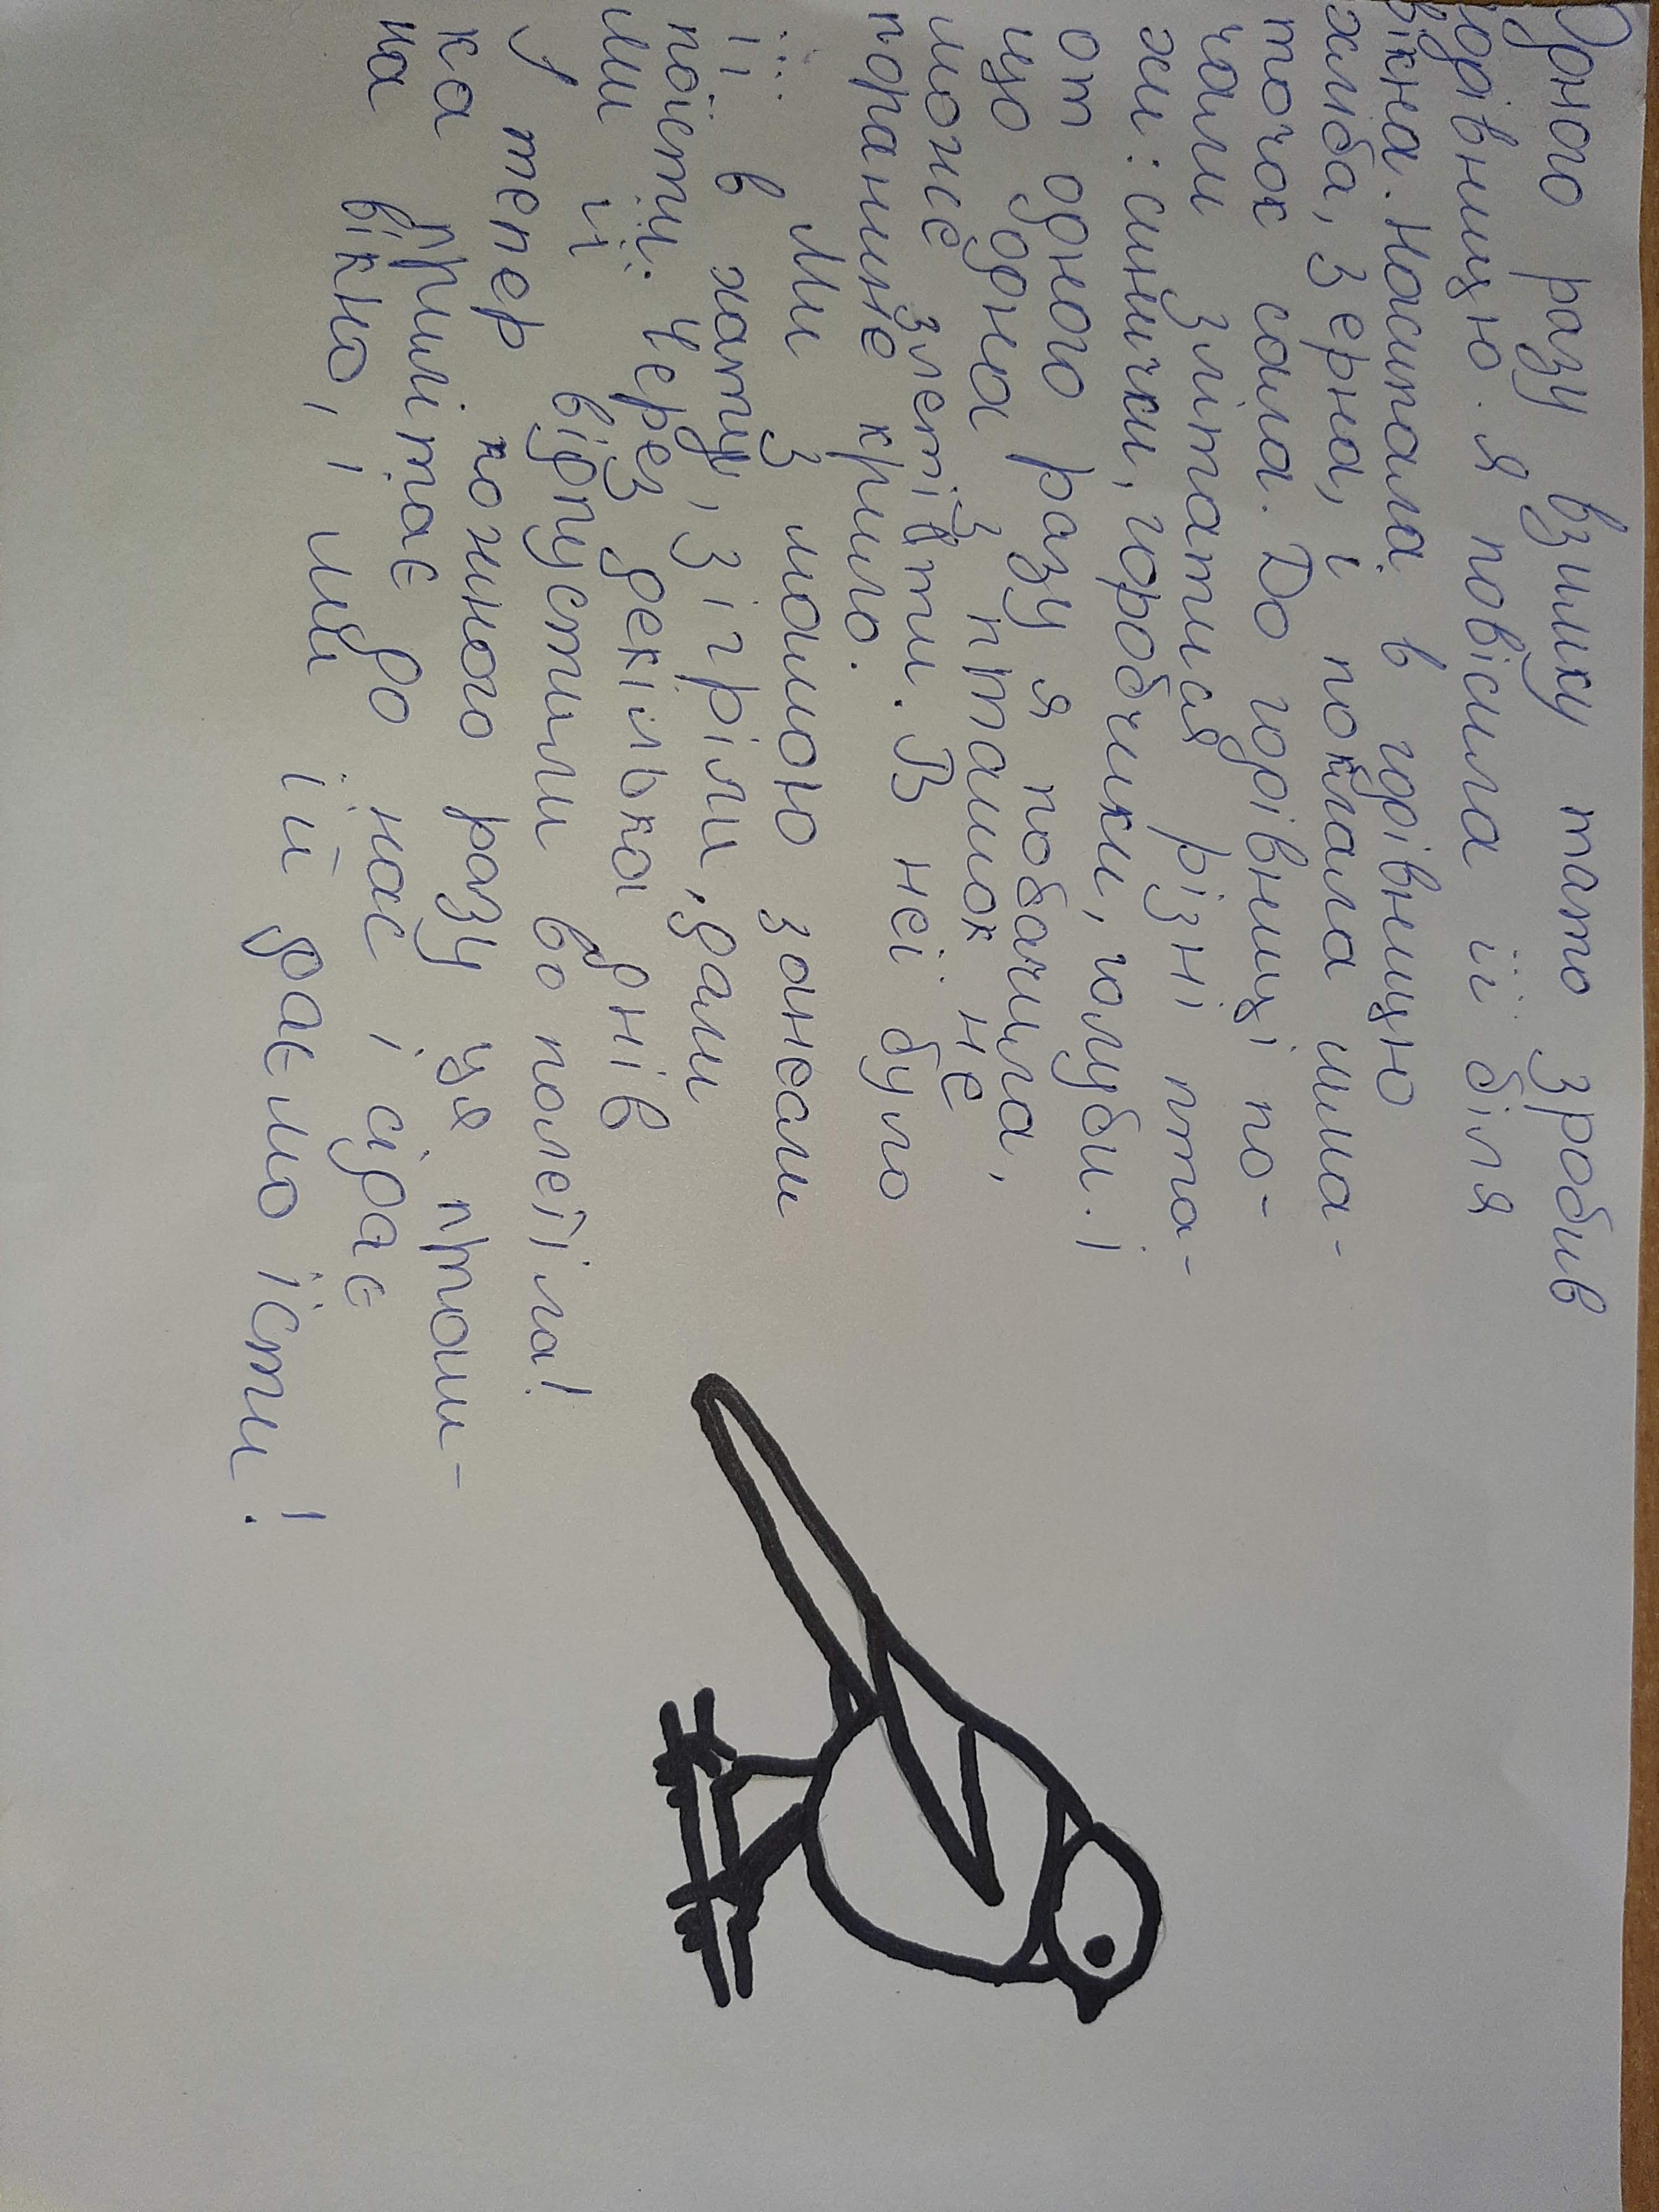 Одного разу взимку тато зробив
годівницю. Я повісила її біля
вікна. Насипала в годівницю
хліба, зерна, і поклала шма-
точок сала. До годівниці по-
чали злітатися різні пта-
хи: синички, горобчики, голуби. І
от одного разу я побачила,
що одна з пташок не
може злетіти. В неї було
поранине крило.
Ми з мамою занесли
її в хату, зігріли, дали
поїсти. Через декілька днів
ми її відпустили во полетіла!
У тепер кожного разу ця пташ-
ка прилітає до нас і сідає
на вікно, і ми їй даємо їсти!